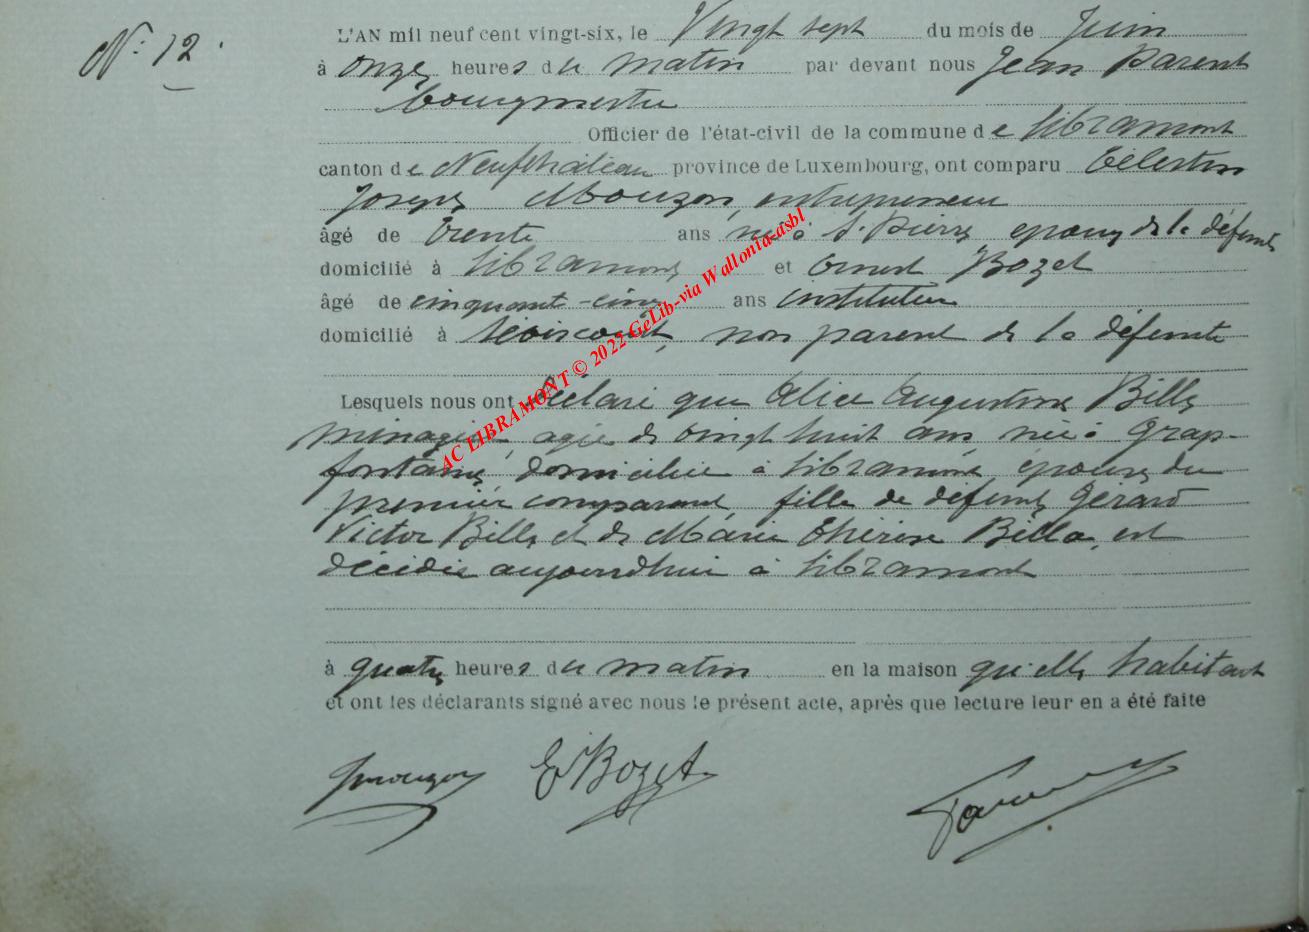 N° 12.
L'AN mil neuf cent vingt-six, le Vingt sept du mois de Juin
à onze heures du matin par devant nous Jean Parent
bourgmestre
Officier de l'état-civil de la commune de Libramont
canton de Neufchâteau province de Luxembourg, ont comparu Célestin
Joseph Mouzon, entrepreneur
âgé de Trente ans né à St. Pierre, époux de la défunte
domicilié à Libramont et Ernest Bozet
âgé de cinquante-cinq ans instituteur
domicilié à non parent de la défunte
Lesquels nous ont déclaré que Alice Augustine Billy
ménagère, agée de vingt huit ans née à Grap-
fontaine, domiciliée à Libramont épouse du
premier comparant, fille de défunt Gerard
Victor Billy et de Marie Thérèse Billa, est
décédée aujourdhui à Libramont
à quatre heures du matin en la maison qu'elle habitait
et ont les déclarants signé avec nous le présent acte, après que lecture leur en a été faite
JMouzon EBozet Parent
AC LIBRAMONT © 2022 GeLib-via Wallonia-asbl